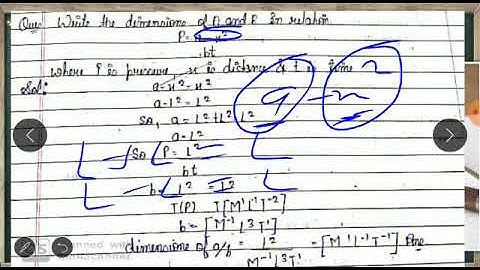 Que: Write the dimensions of A and B in relation
P = a - x²
bt
where P is pressure, x is distance & t is time
Sol: a = x² = x²
a - L² = L²
So, a = L² + L² L²
a = L²
So P = L²
bt
b = L² = L²
T(P) T[M¹L¹T⁻²]
b = [M⁻¹L³T¹]
dimensions of a/b = L² = [M¹L⁻¹T⁻¹] Ans
M⁻¹L³T¹
a - x 2
Scanned with